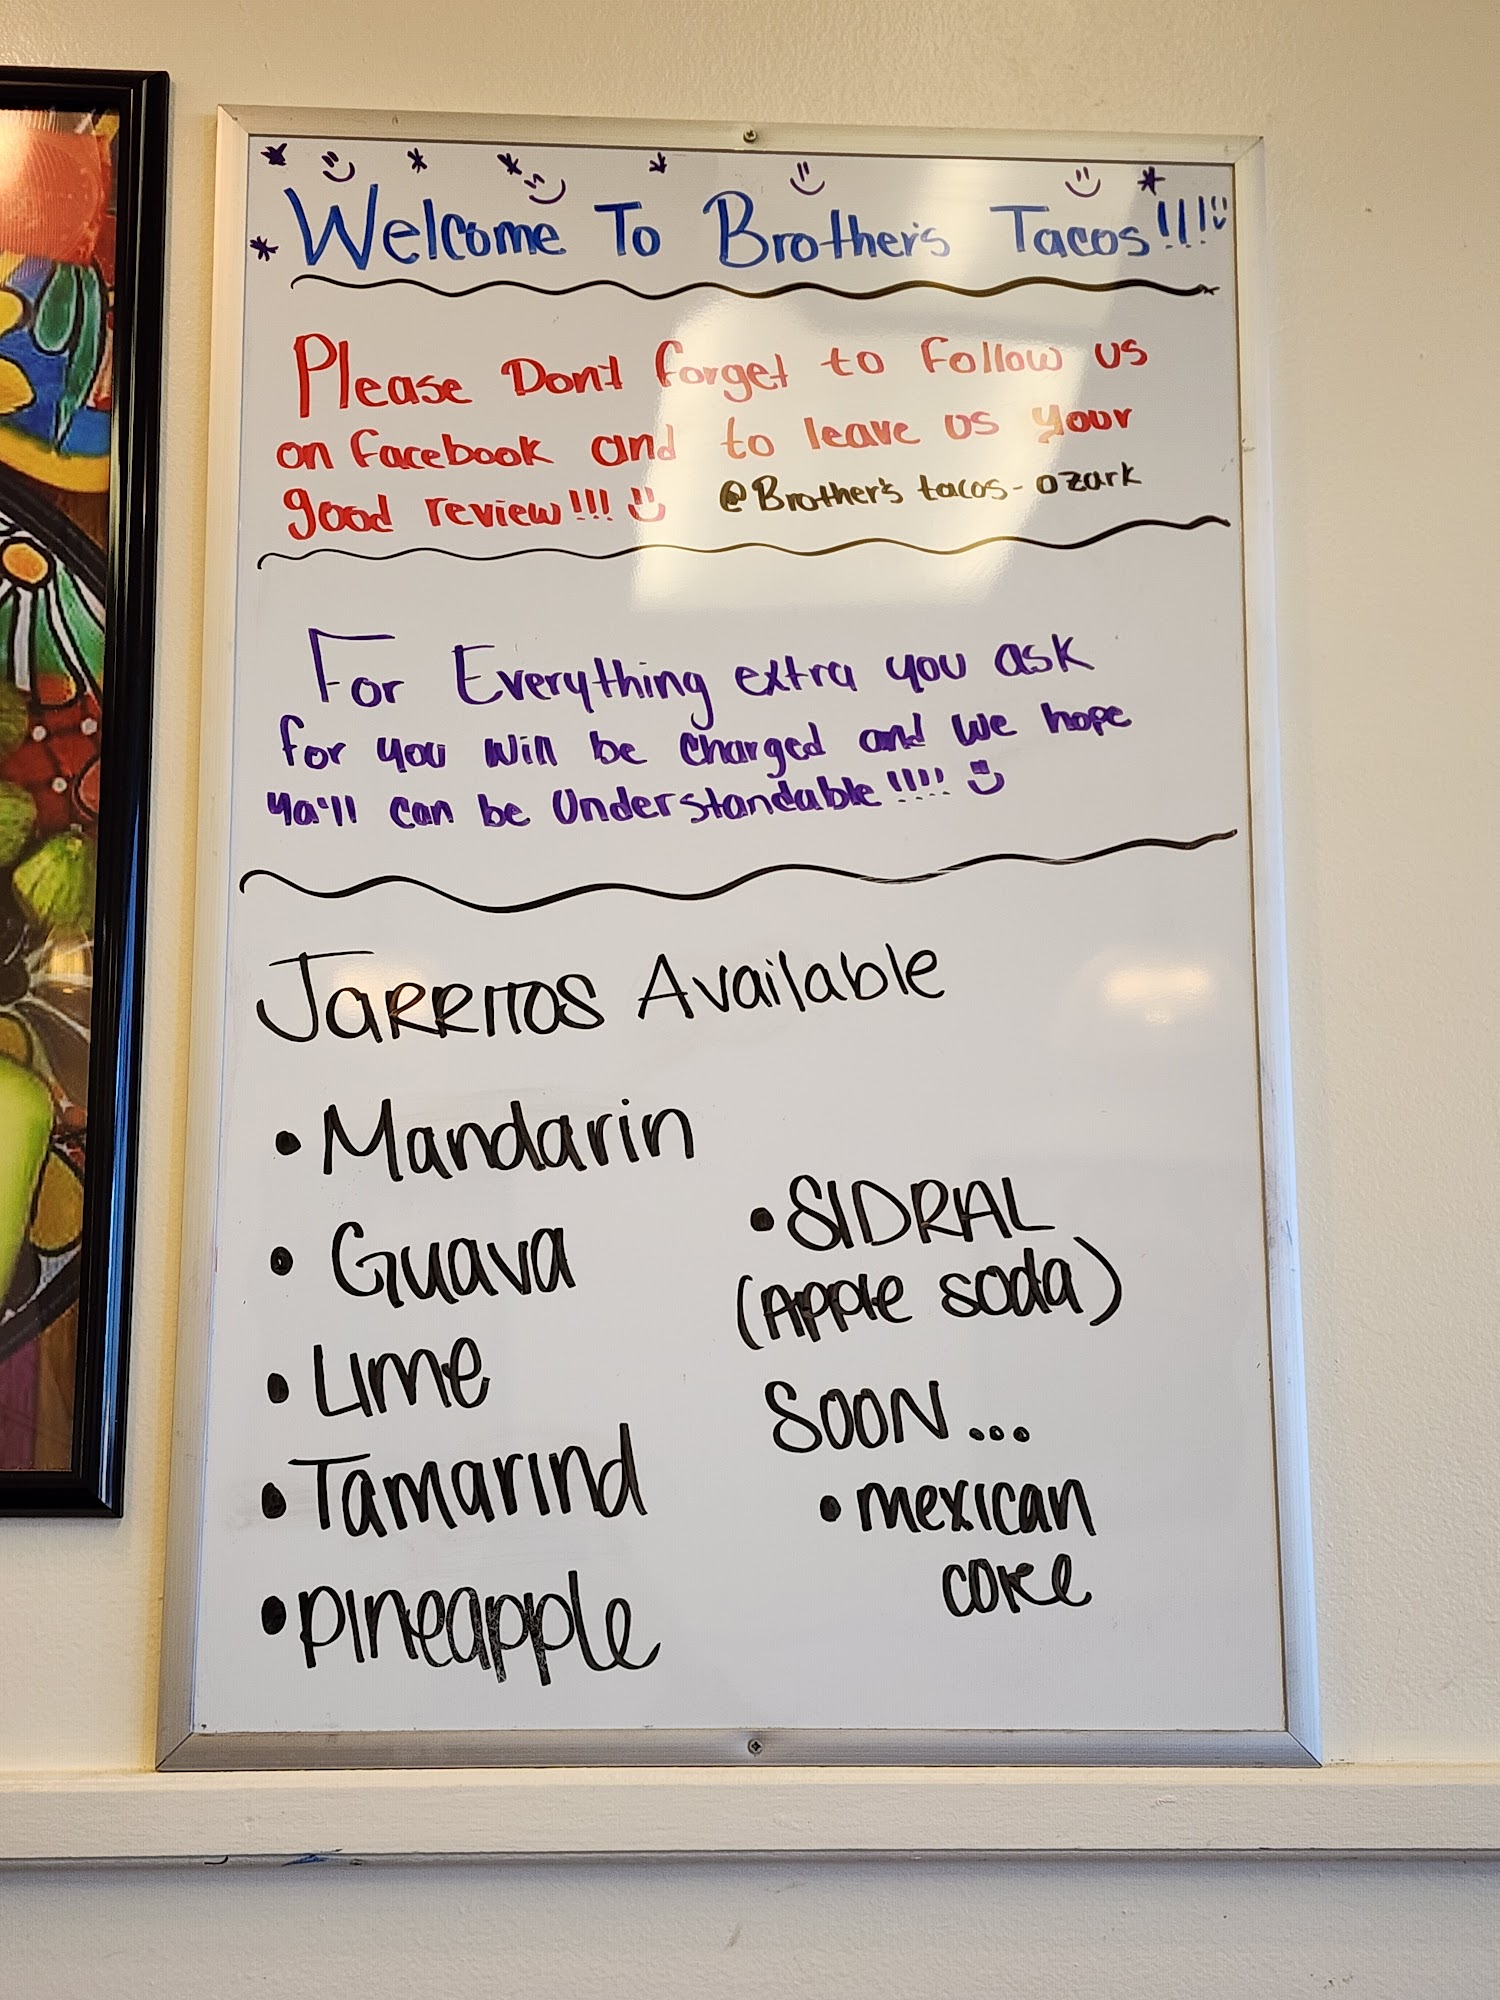 Welcome To Brother's Tacos!!!!
Please Don't forget to Follow us
on Facebook and to leave us your
good review!!!
@Brother's tacos-ozark
For Everything extra you ask
for you will be charged and we hope
Ya'll can be Understandable!!!!
JARRITOS Available
• Mandarin
• Guava
• Lime
• Tamarind
• Pineapple
• SIDRAL
(Apple soda)
SOON...
• mexican
coke